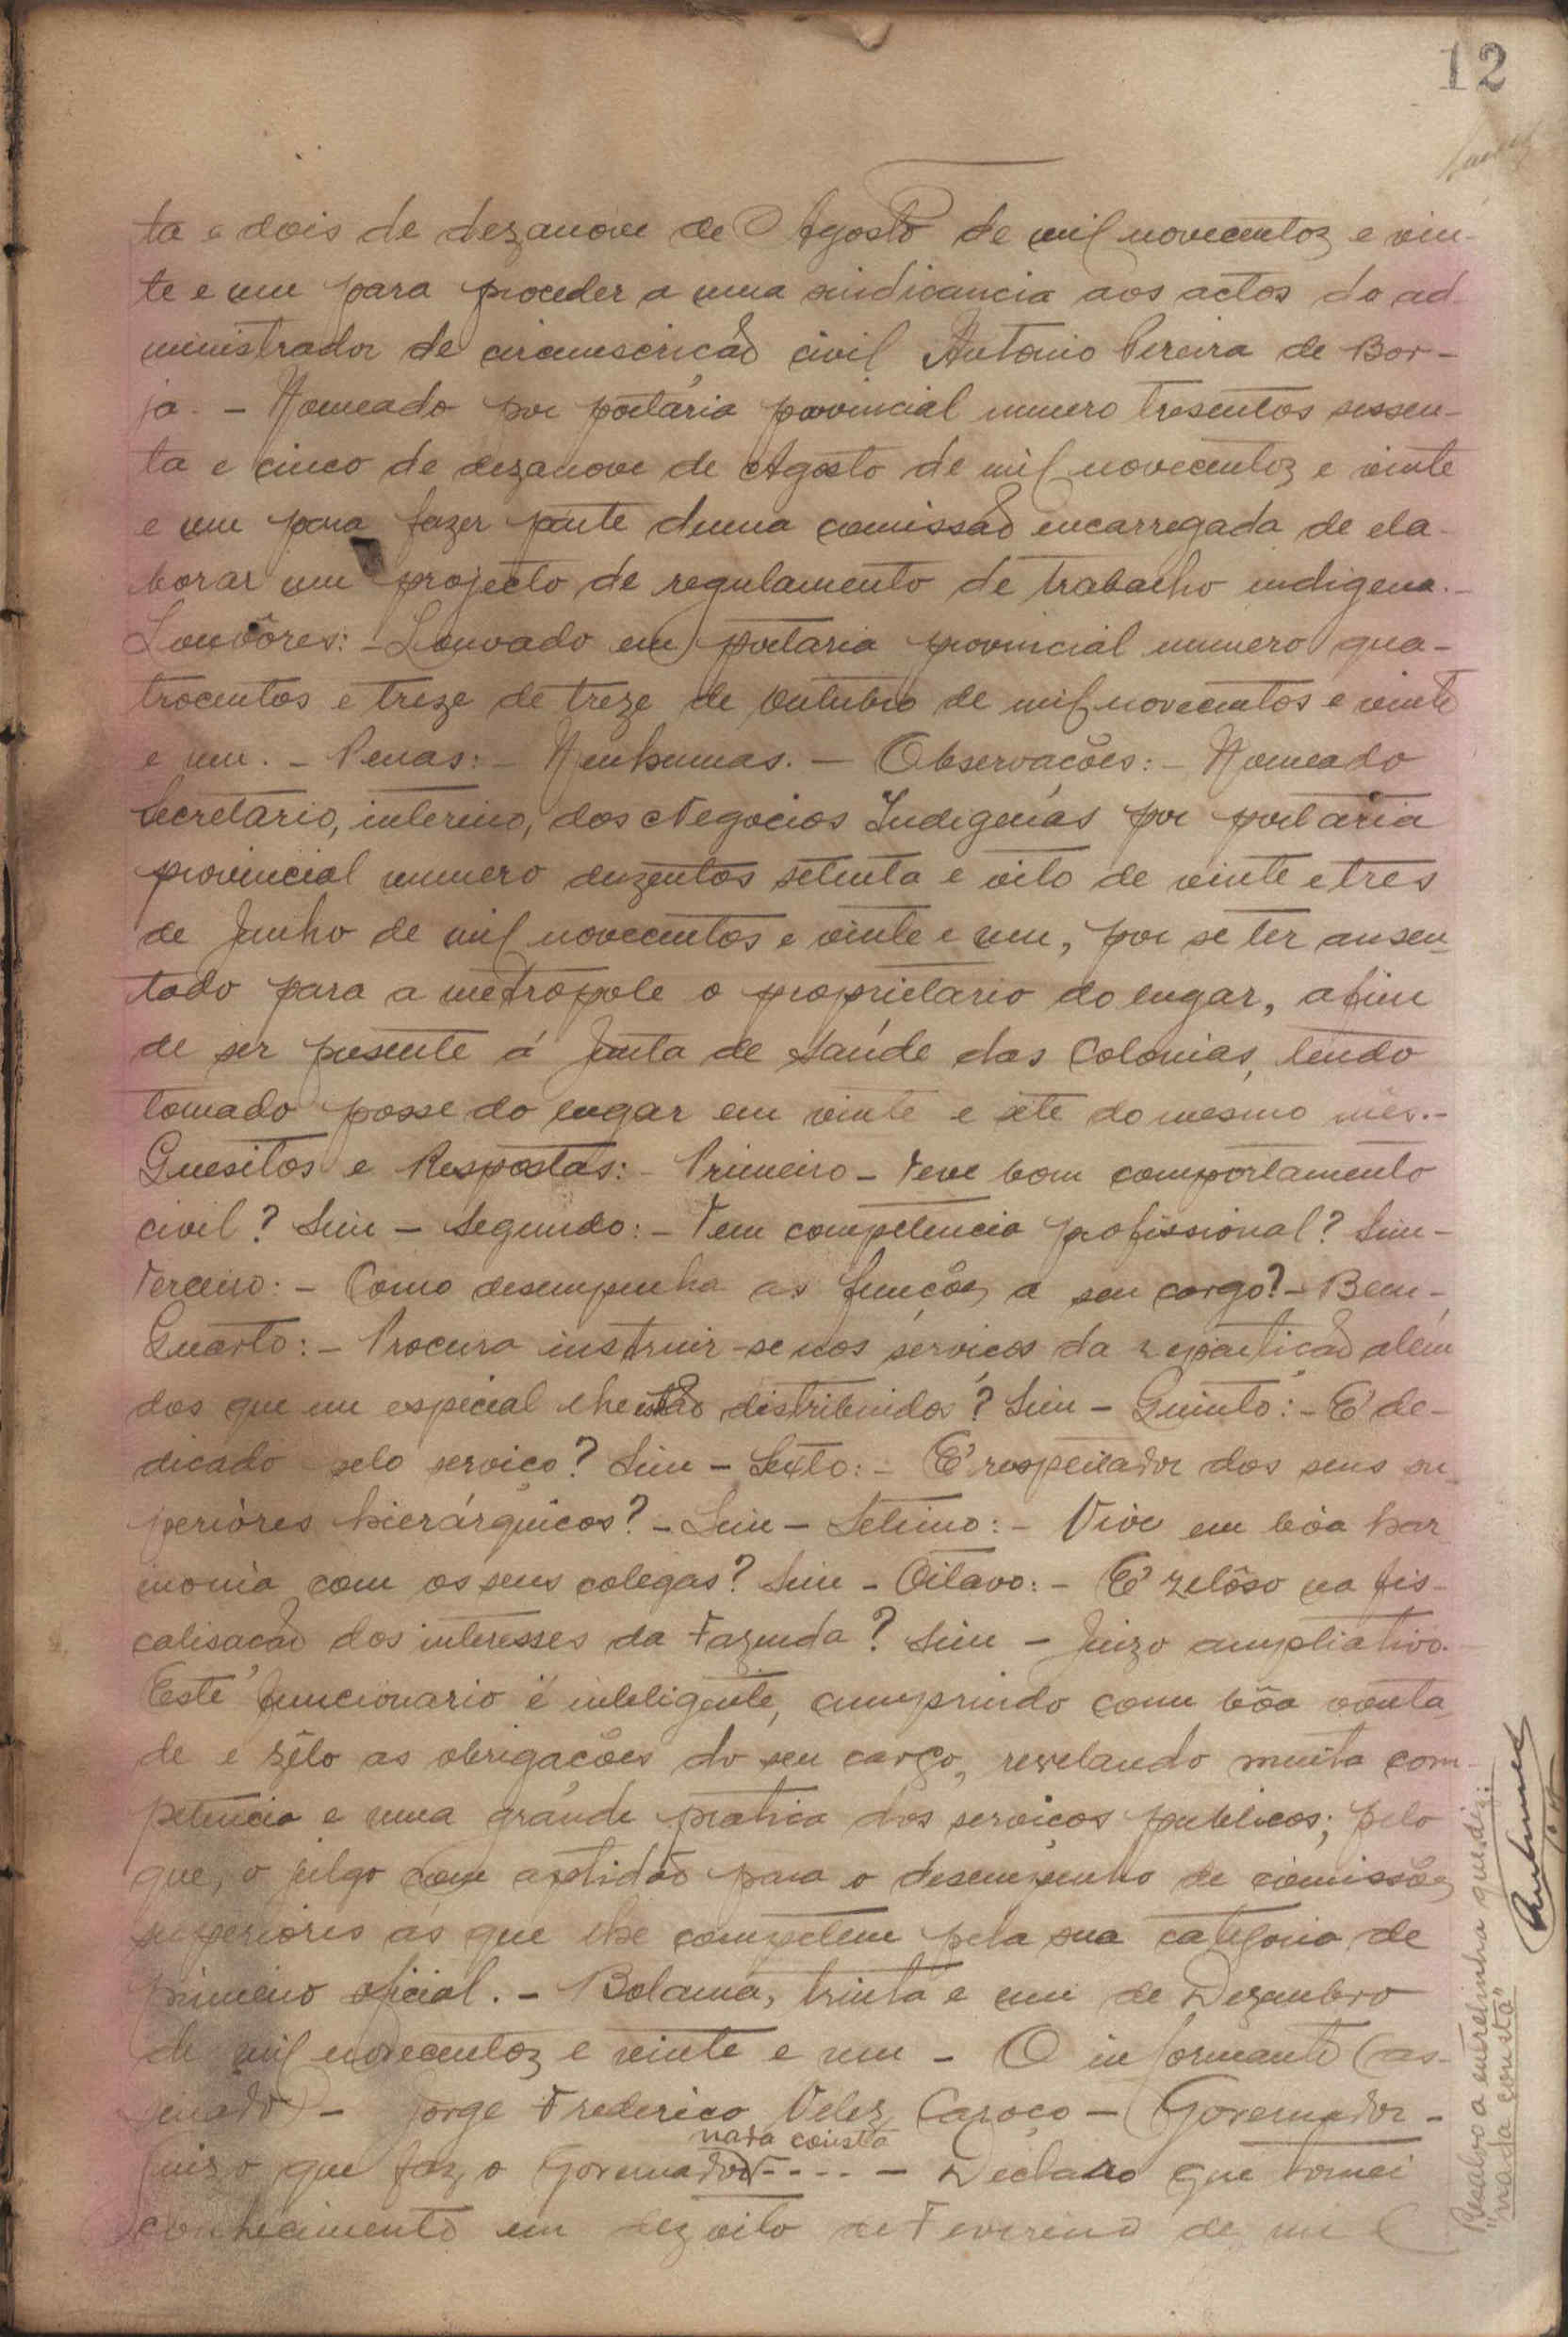 12
ta e dois de dezanove de Agosto de mil novecentoz e vin-
te e um para proceder a uma sindicancia aos actos do ad-
ministrador de circunscrição civil Antonio Pereira de Bor-
ja. - Nomeado por portária provincial numero tresentos sessen-
ta e cinco de dezanove de Agosto de mil novecentoz e vinte
e um para fazer parte duma comissão encarregada de ela-
borar um projecto de regulamento de trabalho indigena. -
Louvôres: - Louvado em portaria provincial numero qua-
trocentos e treze de treze de Outubro de mil novecentos e vinte
e um. - Penas: - Nenhumas. - Observações: - Nomeado
Secretário, interino, dos Negocios Indigenas por portaria
provincial numero duzentos setenta e oito de vinte e tres
de Junho de mil novecentos e vinte e um, por se ter ausen-
tado para a metropole o proprietario do lugar, afim
de ser presente á Junta de Saúde das Colonias, tendo
tomado posse do lugar em vinte e sete do mesmo mês. -
Quesitos e Respostas: - Primeiro - Teve bom comportamento
civil? Sim - Segundo: - Tem competencia profissional? Sim -
Terceiro: - Como desempenha as funções a seu cargo? - Bem -
Quarto: - Procura instruir-se nos serviços da repartição além
dos que em especial lhe estão distribuidos? Sim - Quinto: - É de-
dicado pelo serviço? Sim - Sexto: - É respeitador dos seus su-
periôres hierárquicos? - Sim - Setimo: - Vive em bôa har
monia com os seus colegas? Sim - Oitavo: - É zelôso na fis-
calisação dos interesses da Fazenda? Sim - Juizo ampliativo. -
Este funcionario é inteligente, cumprindo com bôa vonta
de e zêlo as obrigações do seu cargo, revelando muita com-
petencia e uma grande pratica dos serviços publicos; pelo
que, o julgo com aptidão para o desempenho de comissões
superiôres ás que lhe competem pela sua categoria de
primeiro oficial. - Bolama, trinta e um de Dezembro
de mil novecentoz e vinte e um - O informante (as-
sinado) - Jorge Frederico Velez Caroço - Governador -
nada consta
Juizo que faz o Governador - - - - - Declaro que tomei
conhecimento em dezoito de Fevereiro de mil
Ressalvo a entrelinha que diz:
"nada consta"